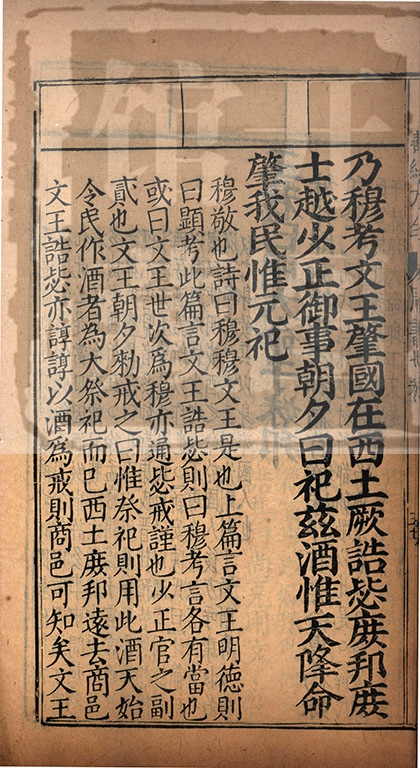 乃穆考文王肇國在西土厥誥毖庻邦庻
士越少正御事朝夕曰祀兹酒惟天降命
肇我民惟元祀
穆敬也詩曰穆穆文王是也上篇言文王明德則
曰顯考此篇言文王誥毖則曰穆考言各有當也
或曰文王世次為穆亦通毖戒謹也少正官之副
貳也文王朝夕勑戒之曰惟祭祀則用此酒天始
令民作酒者為大祭祀而巳西土庻邦遠去商邑
文王誥毖亦諄諄以酒為戒則商邑可知矣文王